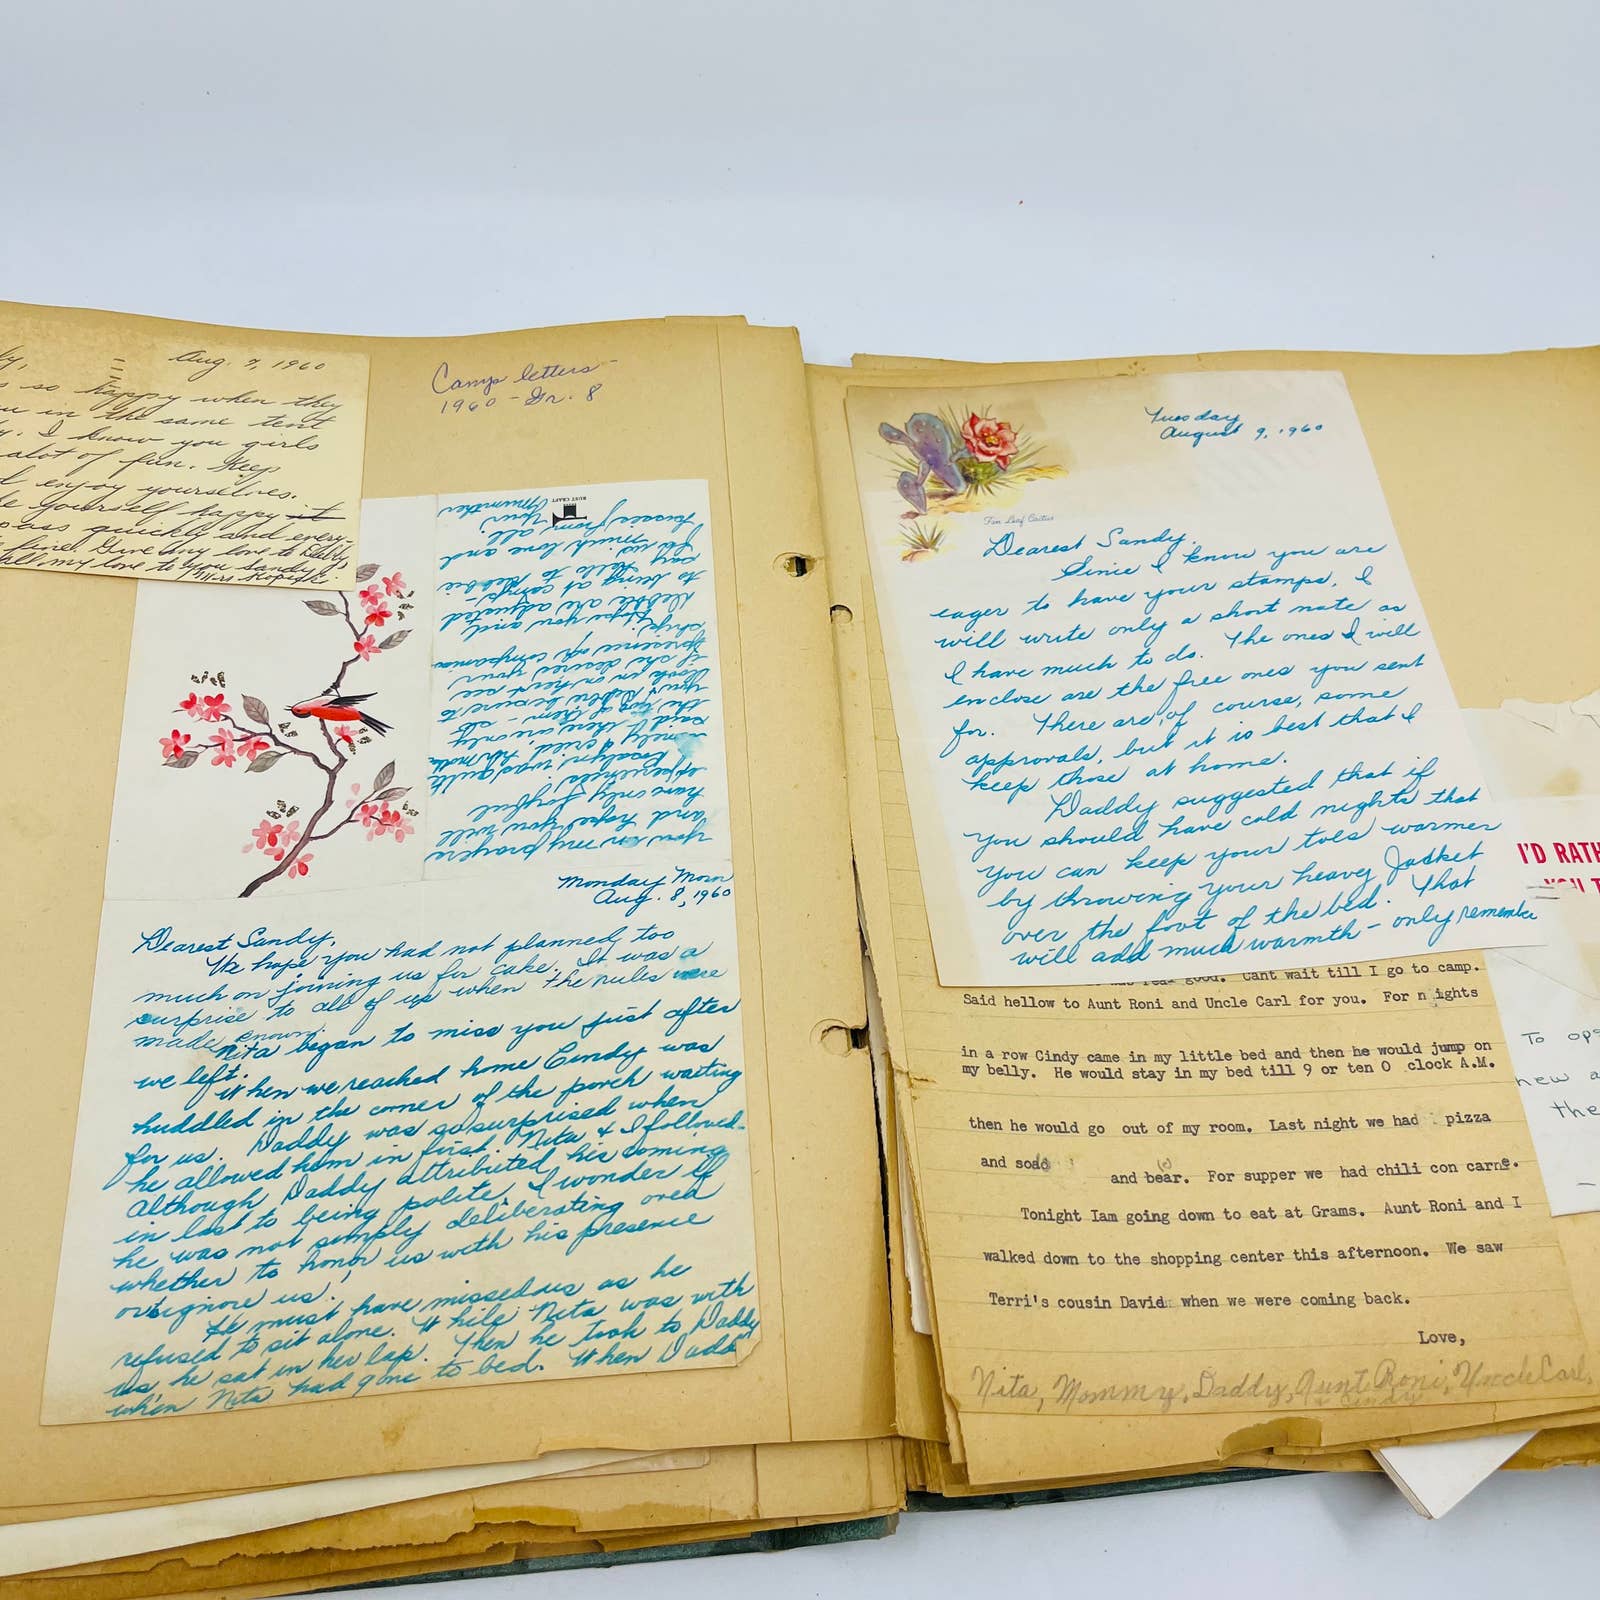 Aug. 7, 1960
so happy when they
in the same tent
I know you girls
alot of fun. Keep
enjoy yourselves.
yourself happy it
pass quickly and every-
fine. Give my love to Debby,
all my love to you Sandy
Camp letters-
1960 - Gr. 8
RUST CRAFT
you in my prayers
and hope you will
have only joyful
experiences.
Rosalyn was quite
lonely & cried,
said there are only
the two of them - so
you & Debbie be sure to
look in on her
if she desires your
presence or companion-
ship.
Hope you and
Debbie are adjusted
to being at camp-
Say hello to Debbie
for us. Much love and
kisses from all.
Your
Mumther
Monday Morn
Aug. 8, 1960
Dearest Sandy,
We hope you had not planned too
much on joining us for cake. It was a
surprise to all of us when the rules were
made known.
Nita began to miss you just after
we left.
When we reached home Cindy was
huddled in the corner of the porch waiting
for us. Daddy was so surprised when
he allowed him in first. Nita & I followed-
Although Daddy attributed his coming
in last to being polite, I wonder if
he was not simply deliberating over
whether to honor us with his presence
or ignore us!
He must have missed us as he
refused to sit alone. While Nita was with
us, he sat in her lap. Then he took to Daddy
when Nita had gone to bed. When Dadd
Tuesday
August 9, 1960
Fan Leaf Cactus
Dearest Sandy,
Since I know you are
eager to have your stamps, I
will write only a short note as
I have much to do. The ones I will
enclose are the free ones you sent
for. There are, of course, some
approvals, but it is best that I
keep those at home.
Daddy suggested that if
you should have cold nights that
you can keep your toes warmer
by throwing your heavy Jacket
over the foot of the bed. That
will add much warmth - only remember
good. Cant wait till I go to camp.
Said hellow to Aunt Roni and Uncle Carl for you. For n ights
in a row Cindy came in my little bed and then he would jump on
my belly. He would stay in my bed till 9 or ten O clock A.M.
then he would go out of my room. Last night we had pizza
and soad
and bear. For supper we had chili con carne.
Tonight Iam going down to eat at Grams. Aunt Roni and I
walked down to the shopping center this afternoon. We saw
Terri's cousin David when we were coming back.
Love,
Nita, Mommy, Daddy, Aunt Roni, Uncle Carl,
+ Cindy
I'D RATH
YOU T
To op
new a
the